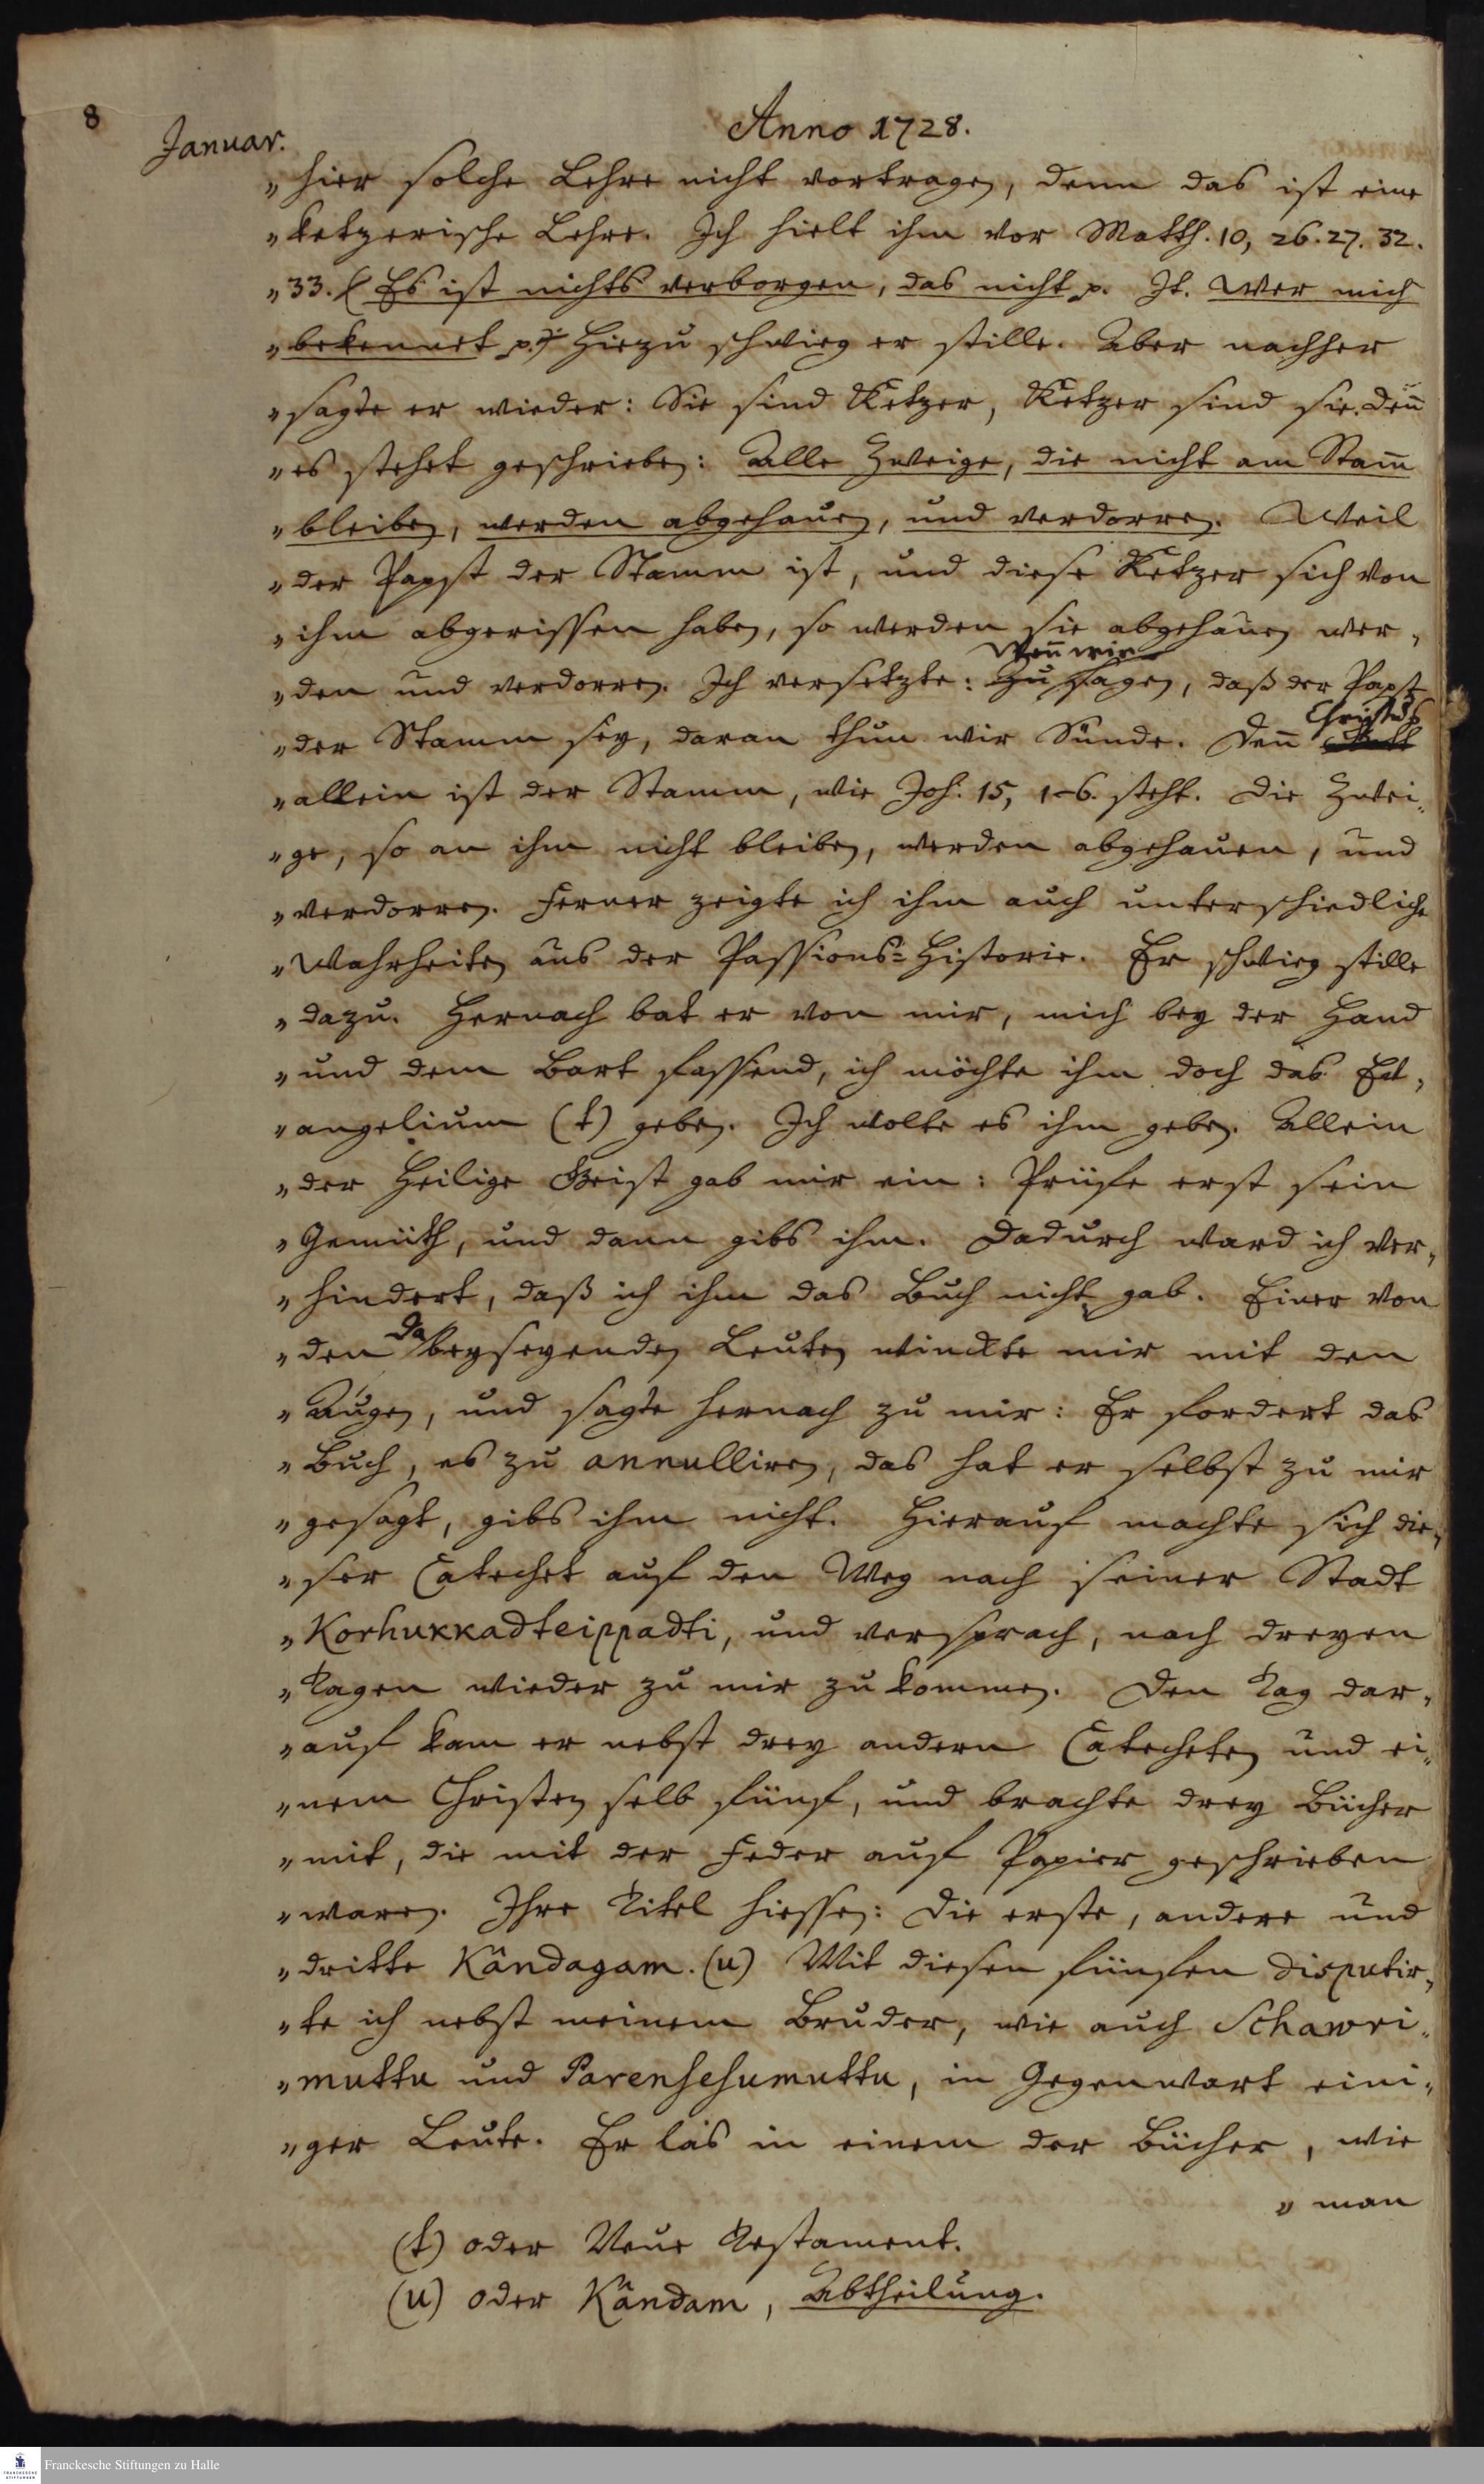 8
Januar.
Anno 1728.
„hier solche Lehre nicht vortragen, denn das ist eine
„ketzerische Lehre. Ich hielt ihm vor Matth. 10, 26. 27. 32.
„33. (Es ist nichts verborgen, das nicht p. It. Wer mich
„bekennet p.) Hiezu schwieg er stille. Aber nachher
„sagte er wieder: Sie sind Ketzer, Ketzer sind sie. Deñ
„es stehet geschrieben: Alle Zweige, die nicht am Stam̃
„bleiben, werden abgehauen, und verdorren. Weil
„der Papst der Stamm ist, und diese Ketzer sich von
„ihm abgerissen haben, so werden sie abgehauen wer„
Weñ wir
„den und verdorren. Ich versetzte: Zu sagen, daß der Papst
Christus
„der Stamm sey, daran thun wir Sünde. Deñ
„allein ist der Stamm, wie Joh. 15, 1-6. steht. Die Zwei„
„ge, so an ihm nicht bleiben, werden abgehauen, und
„verdorren. Ferner zeigte ich ihm auch unterschiedliche
„Wahrheiten aus der Passions-Historie. Er schwieg stille
„dazu. Hernach bat er von mir, mich bey der Hand
„und dem Bart fassend, ich möchte ihm doch das Ev„
„angelium (t) geben. Ich wolte es ihm geben. Allein
„der Heilige Geist gab mir ein: Prüfe erst sein
„Gemüth, und dann gibs ihm. Dadurch ward ich ver„
„hindert, daß ich ihm das Buch nicht gab. Einer von
„den dabeyseyenden Leuten winckte mir mit den
„Augen, und sagte hernach zu mir: Er fordert das
„Buch, es zu annulliren, das hat er selbst zu mir
„gesagt, gibs ihm nicht. Hierauf machte sich die„
„ser Catechet auf den Weg nach seiner Stadt
„Korhukkadteippadti, und versprach, nach dreyen
„Tagen wieder zu mir zu kommen. Den Tag dar„
„auf kam er nebst drey andern Catecheten und ei„
„nem Christen selb fünf, und brachte drey Bücher
„mit, die mit der Feder auf Papier geschrieben
„waren. Ihre Titel hiessen: Die erste, andere und
„dritte Kândagam. (u) Mit diesen fünfen disputir„
„te ich nebst meinem Bruder, wie auch Schawri„
„muttu und Parensesumuttu, in Gegenwart eini„
„ger Leute. Er las in einem der Bücher, wie
„man
(t) oder Neue Testament.
(u) oder Kândam, Abtheilung.
Franckesche Stiftungen zu Halle